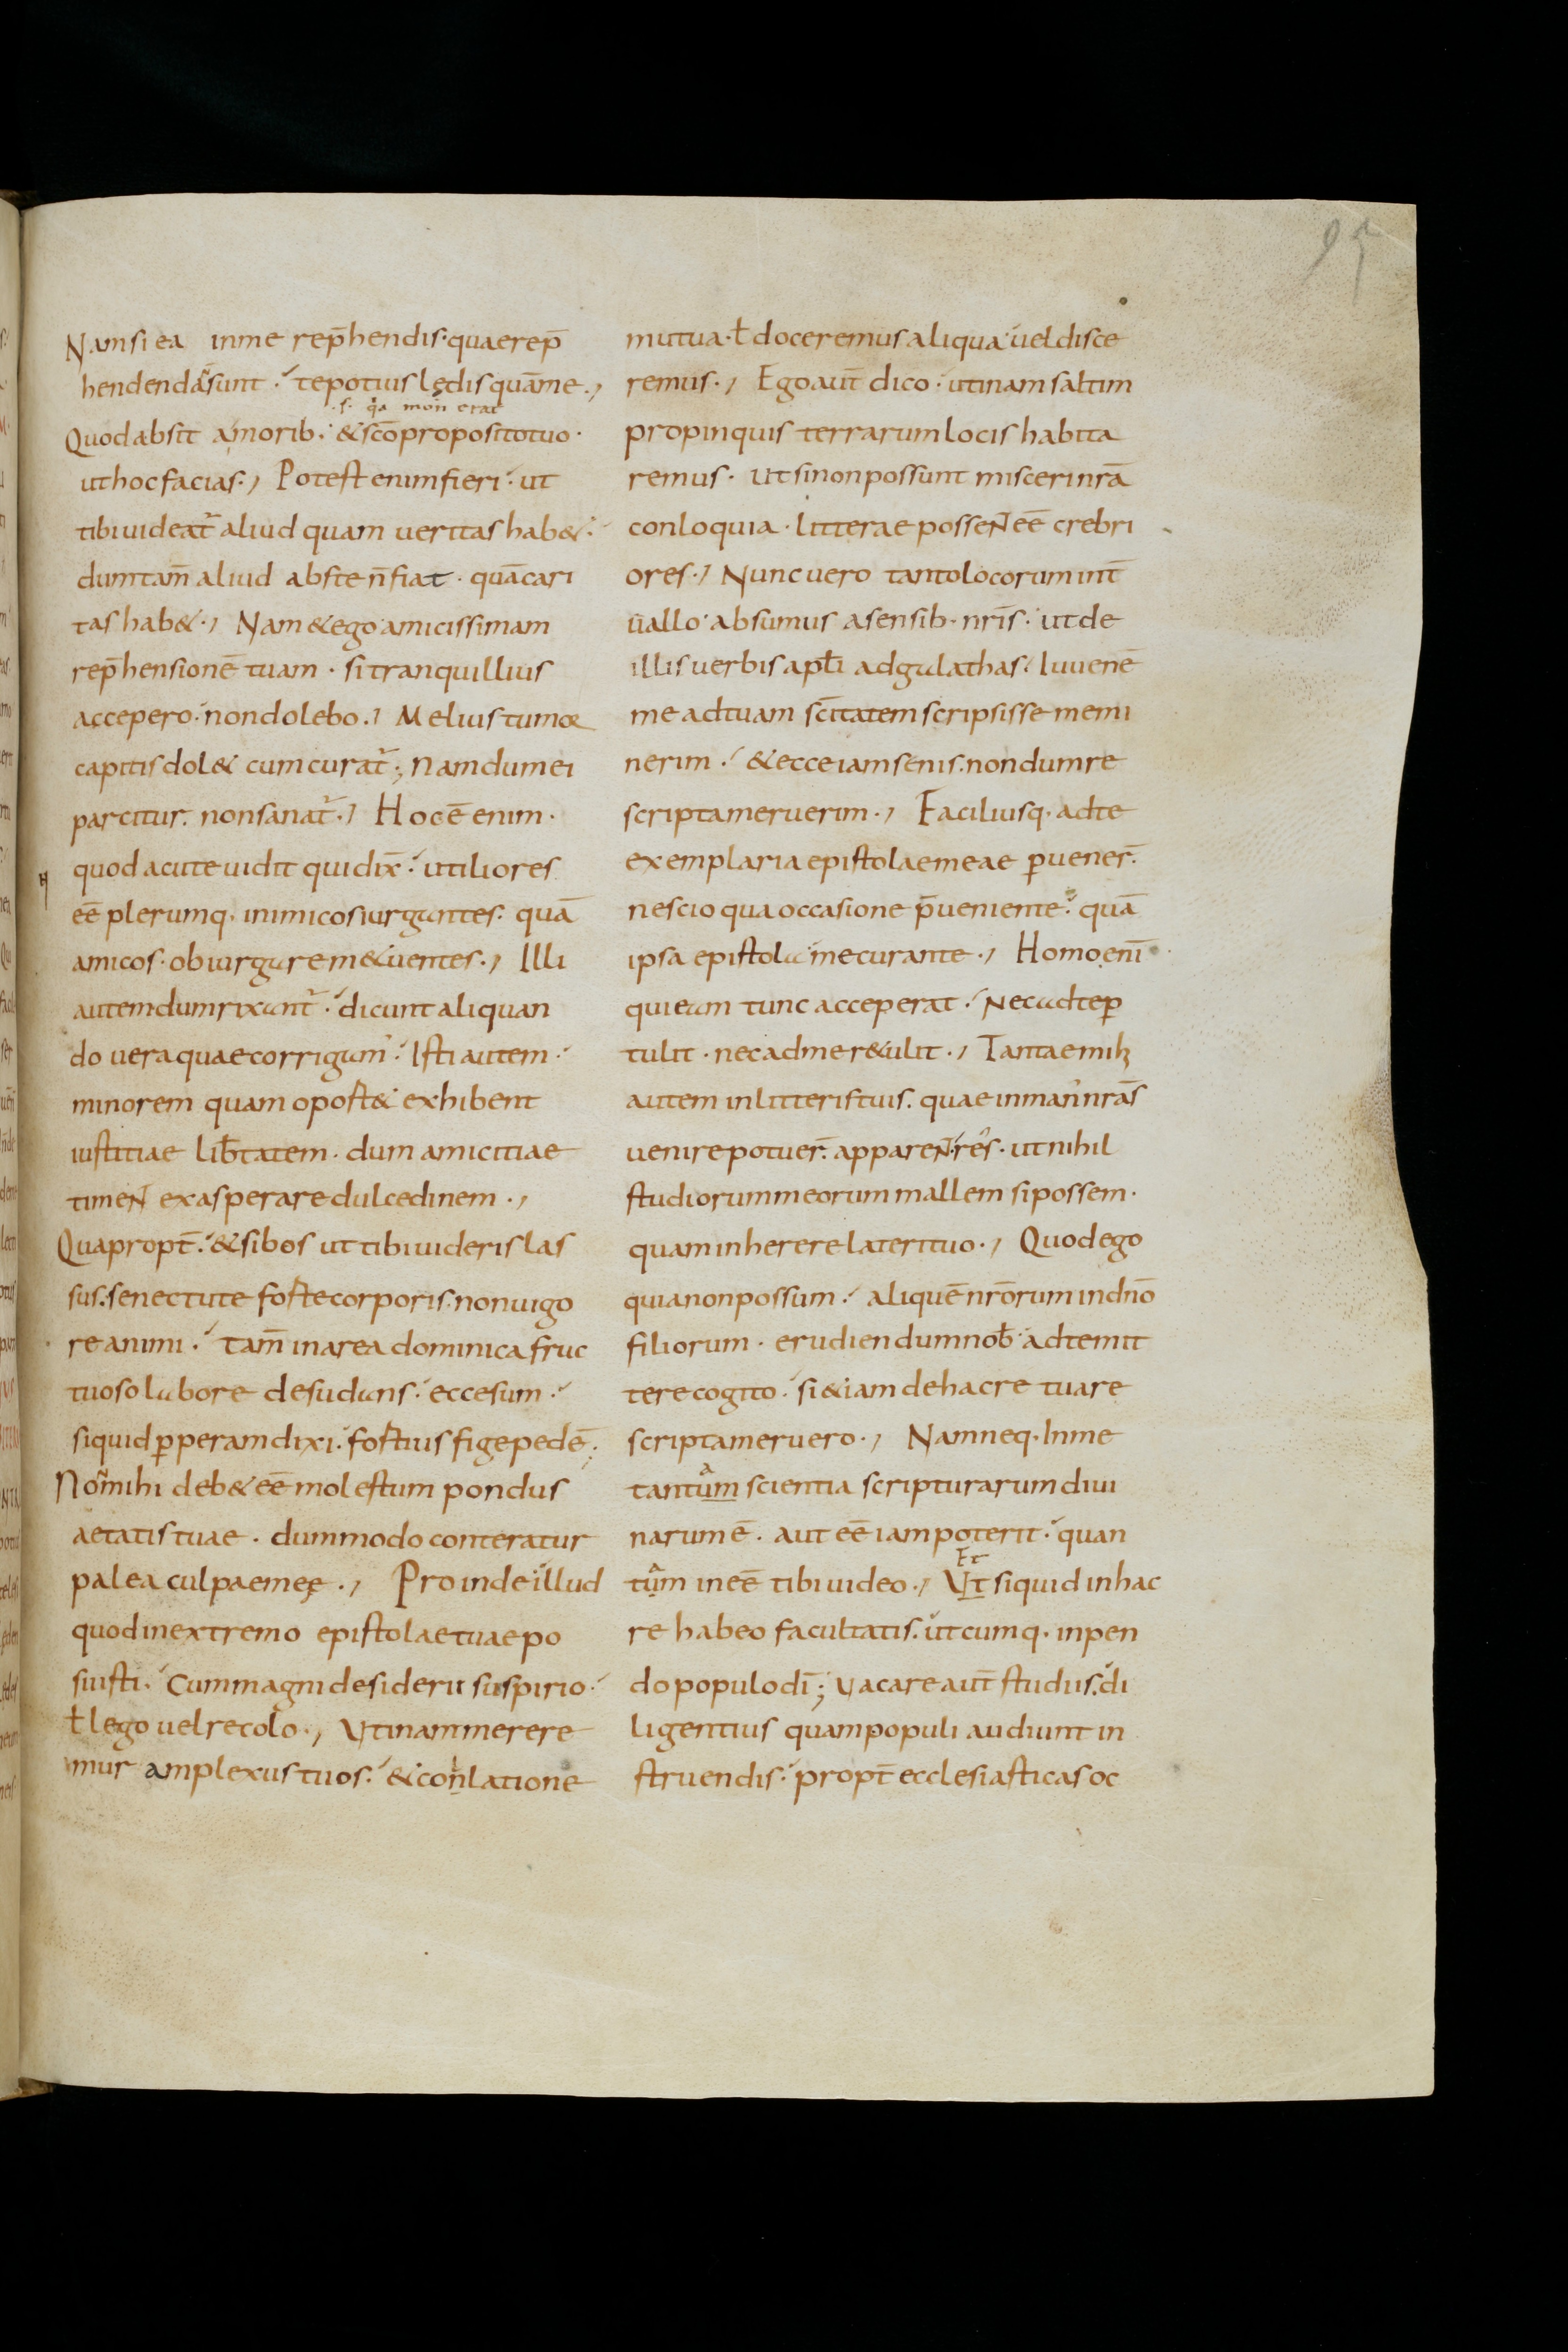 95
Nam si ea in me rep̄hendis · quae rep̄
hendenda sunt · te potius lędis quā me ·,
·s· q̇a mon̄ erat
Quod absit a morib; & sc̄o proposito tuo ·
ut hoc facias ·, Potest enim fieri · ut
tibi uideat̄ aliud quam ueritas hab& ·
dum tam̄ aliud abs te n̄ fiat · quā cari
tas hab& ·, Nam & ego amicissimam
rep̄hensionē tuam · si tranquillius
accepero · non dolebo ·, Melius tumor
capitis dol& cum curat̄ ; Nam dum ei
parcitur · non sanat̄ ·, Hoc ē enim ·
quod acute uidit qui dix̄ · utiliores
eē plerumq · inimicos iurgantes · quā
amicos · obiurgare m&uentes ·, Illi
autem dum rixant̄ · dicunt aliquan
do uera quae corrigam̄ · Isti autem ·
minorem quam oport& exhibent
iustitiae lib̄tatem · dum amicitiae
timent exasperare dulcedinem ·,
Quapropt̄ · & si bos ut tibi uideris las
sus · senectute forte corporis · non uigo
re animi · tam̄ in area dominica fruc
tuoso labore desudans · ecce sum ·
si quid ꝑperam dixi · fortius fige pedē ;
Non mihi deb& eē molestum pondus
aetatis tuae · dummodo conteratur
palea culpae meę ·, Proinde illud
quod in extremo epistolae tuae po
suisti · Cum magni desiderii suspirio ·
ł lego uel recolo ·, Utinam merere
mur amplexus tuos · & conlatione
mutua · ł doceremus aliqua uel disce
remus ·, Ego aut̄ dico · utinam saltim
propinquis terrarum locis habita
remus · ut si non possunt misceri nr̄a
conloquia · litterae possent eē crebri
ores ·, Nunc uero tanto locorum int̄
uallo absumus a sensib · nr̄is · ut de
illis uerbis apłi ad galathas · Iuuenē
me ad tuam sc̄itatem scripsisse memi
nerim · & ecce iam senis · nondum re
scripta meruerim ·, Faciliusq · ad te
exemplaria epistolae meae ꝑuener̄ ·
nescio qua occasione p̄ueniente · quā
ipsa epistola me curante ·, Homo eni̅
qui eam tunc acceperat · Nec ad te ꝑ
tulit · nec ad me r&ulit ·, Tantae mih
autem in litteris tuis · quae in man̄ nr̄as
uenire potuer̄ · apparent res · ut nihil
studiorum meorum mallem si possem ·
quam inherere lateri tuo ·, Quod ego
quia non possum · aliquē nr̄orum in dn̄o
filiorum · erudiendum nob̄ ad te mit
tere cogito · si &iam de hac re tua re
scripta meruero ·, Nam neq · In me
tantum scientia scripturarum diui
narum ē · aut eē iam poterit · quan
Et
tum ineē tibi uideo ·, Ut si quid in hac
re habeo facultatis · utcumq · inpen
do populo dī ; Vacare aut̄ studiis · di
ligentius quam populi audiunt in
struendis · propt̄ ecclesiasticas oc